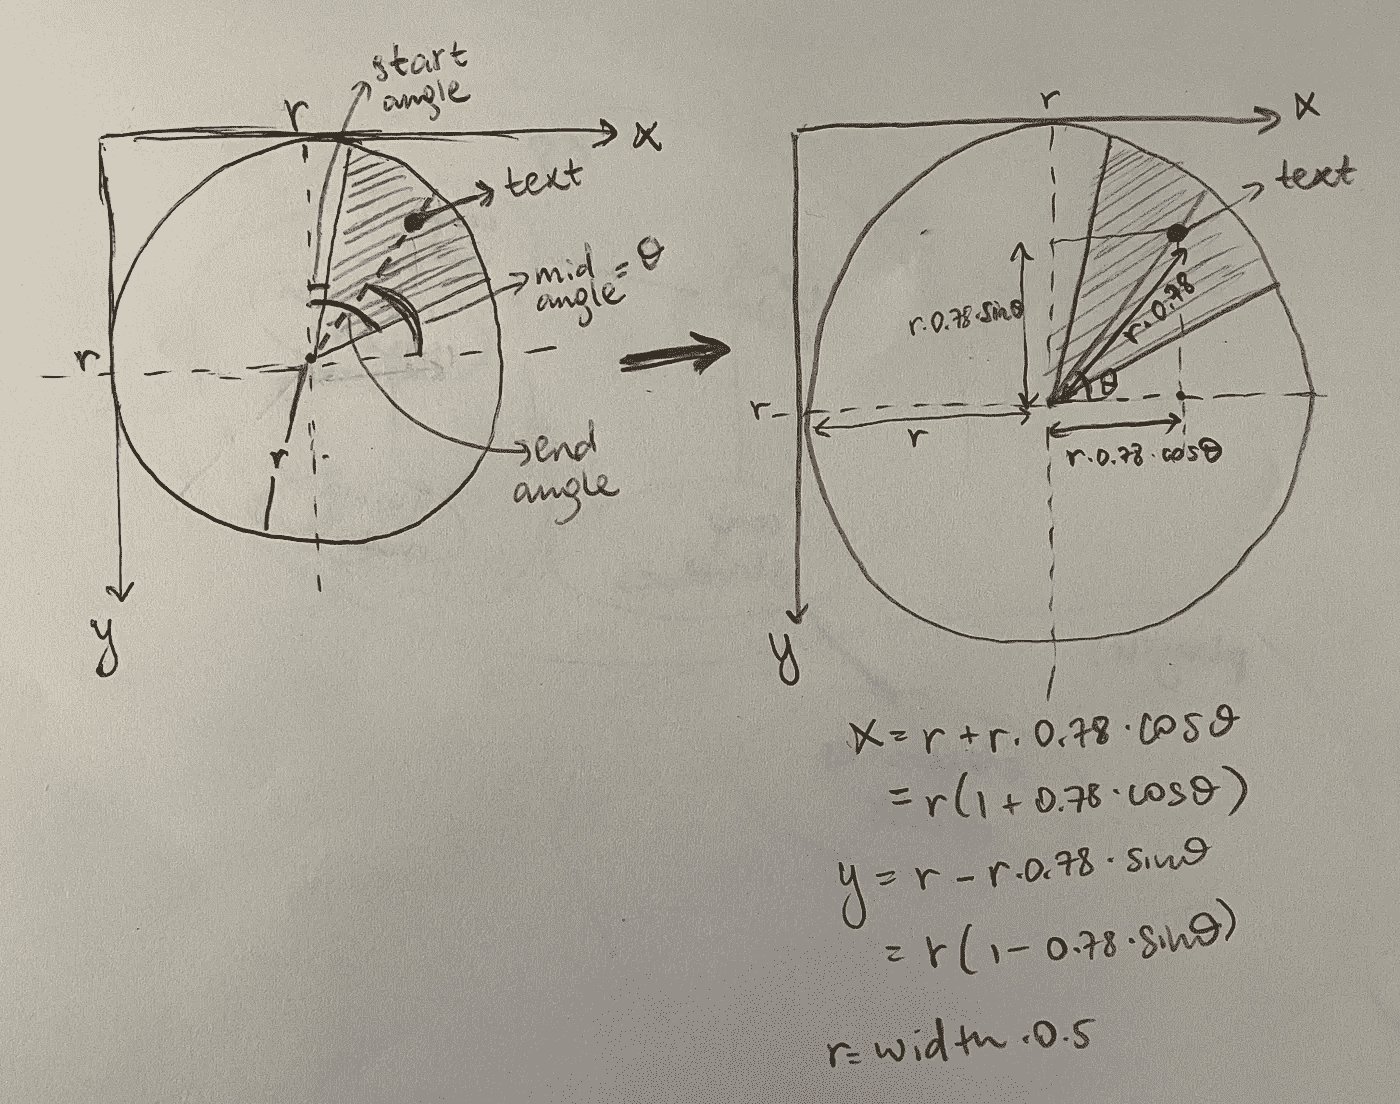 start
angle
r
x
text
mid = θ
angle
r
r
end
angle
y
r
x
text
r.0.78.sinθ
r.0.78
θ
r
r
r.0.78.cosθ
y
x = r + r. 0.78 . cosθ
= r(1 + 0.78 . cosθ)
y = r - r.0.78 . sinθ
= r(1 - 0.78 . sinθ)
r = width .0.5